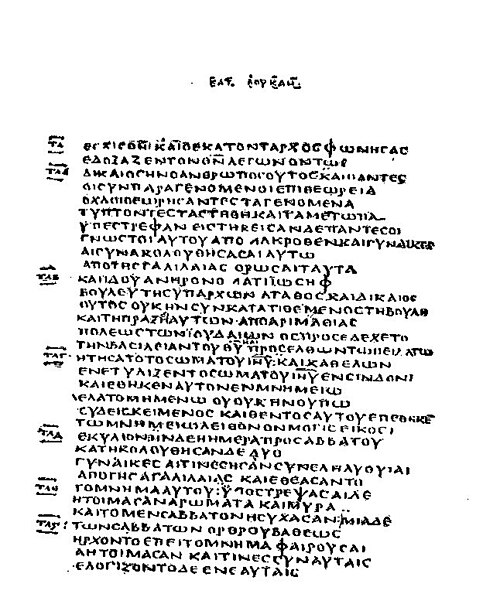 ΚΑΙΟΕΚΑΤΟΝΤΑΡΧΟΣΦΩΝΗΣΑΣ
ΕΔΟΞΑΖΕΝΤΟΝΘΝ ΛΕΓΩΝΟΝΤΩΣ
ΔΙΚΑΙΟΣΗΝΟΑΝΘΡΩΠΟΣΟΥΤΟΣΚΑΙΠΑΝΤΕΣ
ΟΙΣΥΝΠΑΡΑΓΕΝΟΜΕΝΟΙΕΠΙΘΕΩΡΕΙΑ
ΟΧΛΟΙΘΕΩΡΗΣΑΝΤΕΣΤΑΓΕΝΟΜΕΝΑ
ΤΥΠΤΟΝΤΕΣΤΑΣΤΗΘΗΚΑΙΤΑΜΕΤΩΠΑ
ΥΠΕΣΤΡΕΦΑΝ ΕΙΣΤΗΚΕΙΣΑΝΔΕΠΑΝΤΕΣΟΙ
ΓΝΩΣΤΟΙΑΥΤΟΥΑΠΟ ΜΑΚΡΟΘΕΝΚΑΙΓΥΝΑΙΚΕΣ
ΑΙΣΥΝΑΚΟΛΟΥΘΗΣΑΣΑΙΑΥΤΩ
ΑΠΟΤΗΣΓΑΛΙΛΑΙΑΣ ΟΡΩΣΑΙΤΑΥΤΑ
ΚΑΙΙΔΟΥΑΝΗΡΟΝΟΜΑΤΙΙΩΣΗΦ
ΒΟΥΛΕΥΤΗΣΥΠΑΡΧΩΝ ΑΓΑΘΟΣΚΑΙΔΙΚΑΙΟΣ
ΟΥΤΟΣΟΥΚΗΝΣΥΝΚΑΤΑΤΙΘΕΜΕΝΟΣΤΗΒΟΥΛΗ
ΚΑΙΤΗΠΡΑΞΕΙΑΥΤΩΝ ΑΠΟΑΡΙΜΑΘΙΑΣ
ΠΟΛΕΩΣΤΩΝΙΟΥΔΑΙΩΝ ΟΣΠΡΟΣΕΔΕΧΕΤΟ
ΤΗΝΒΑΣΙΛΕΙΑΝΤΟΥΘΥ ΠΡΟΣΕΛΘΩΝΤΩΠΕΙΛΑΤΩ
ΗΤΗΣΑΤΟΤΟΣΩΜΑΤΟΥΙΗΥ:ΚΑΙΚΑΘΕΛΩΝ
ΕΝΕΤΥΛΙΞΕΝΤΟΣΩΜΑΤΟΥΙΗΥΕΝΣΙΝΔΟΝΙ
ΚΑΙΕΘΗΚΕΝΑΥΤΟΝΕΝΜΝΗΜΕΙΩ
ΛΕΛΑΤΟΜΗΜΕΝΩ ΟΥΟΥΚΗΝΟΥΠΩ
ΟΥΔΕΙΣΚΕΙΜΕΝΟΣ ΚΑΙΘΕΝΤΟΣΑΥΤΟΥΕΠΕΘΗΚΕ
ΤΩΜΝΗΜΕΙΩΛΕΙΘΟΝΟΝΜΟΓΙΣΕΙΚΟΣΙ
ΕΚΥΛΙΟΝΗΝΔΕΗΗΜΕΡΑΠΡΟΣΑΒΒΑΤΟΥ
ΚΑΤΗΚΟΛΟΥΘΗΣΑΝΔΕΔΥΟ
ΓΥΝΑΙΚΕΣΑΙΤΙΝΕΣΗΣΑΝΣΥΝΕΛΗΛΥΘΥΙΑΙ
ΑΠΟΤΗΣΓΑΛΙΛΑΙΑΣ ΚΑΙΕΘΕΑΣΑΝΤΟ
ΤΟΜΝΗΜΑΑΥΤΟΥ:ΥΠΟΣΤΡΕΨΑΣΑΙΔΕ
ΗΤΟΙΜΑΣΑΝΑΡΩΜΑΤΑ ΚΑΙΜΥΡΑ
ΚΑΙΤΟΜΕΝΣΑΒΒΑΤΟΝΗΣΥΧΑΣΑΝ:ΜΙΑΔΕ
ΤΩΝΣΑΒΒΑΤΩΝ ΟΡΘΡΟΥΒΑΘΕΩΣ
ΗΡΧΟΝΤΟΕΠΙΤΟΜΝΗΜΑ ΦΑΙΡΟΥΣΑΙ
ΑΗΤΟΙΜΑΣΑΝ ΚΑΙΤΙΝΕΣΣΥΝΑΥΤΑΙΣ
ΕΛΟΓΙΖΟΝΤΟΔΕ ΕΝΕΑΥΤΑΙΣ